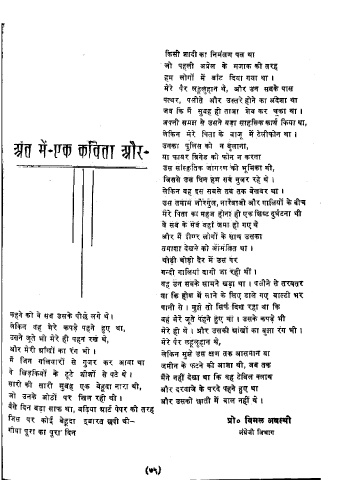 अंत में-एक कविता और-
पहने को वे सब उसके पीछे लगे थे।
लेकिन वह मेरे कपड़े पहने हुए था,
उसने जूते भी मेरे ही पहन रखे थे,
और मेरी आंखों का रंग भी।
मैं जिन गलियारों से गुजर कर आया था
वे खिड़कियों के टूटे शीशों से पटे थे।
सारी की सारी सुबह एक बेहूदा नारा थी,
जो उनके ओठों पर जिन रही थी।
वैसे दिन बड़ा साफ था, बढ़िया चार्ट पेपर की तरह
जिस पर कोई बेहूदा इबारत छपी थी-
गोया पूरा का पूरा दिन
किसी शादी का निमंत्रण पत्र था
जो पहली अप्रैल के मजाक की तरह
हम लोगों में बांट दिया गया था।
मेरे पैर लहूलुहान थे, और उन सबके पास
पत्थर, पलीते और उस्तरे होने का अंदेशा था
जब कि मैं सुबह ही ताजा शेव कर चुका था।
अपनी समझ से उसने बड़ा साहसिक कार्य किया था,
लेकिन मेरे पिता के बाजू में टेलीफोन था।
उनका पुलिस को न बुलाना,
या फायर ब्रिगेड को फोन न करना
उस सांस्कृतिक जागरण की भूमिका थी,
जिससे उस दिन हम सब गुजर रहे थे।
लेकिन वह इस सबसे तब तक बेखबर था।
उस तमाम शोरगुल, नारेबाजी और गालियों के बीच
मेरे पिता का महज होना ही एक शिष्ट दुर्घटना थी
वे सब के सब वहां जमा हो गए थे
और मैं शेष लोगों के साथ उसका
तमाशा देखने को आमंत्रित था।
थोड़ी थोड़ी देर में उस पर
गन्दी गालियां दागी जा रही थीं।
वह उन सबके सामने खड़ा था। पसीने से तरबतर
या कि होश में लाने के लिए डाले गए बाल्टी भर
पानी से। मुझे तो सिर्फ दिख रहा था कि
वह मेरे जूते पहने हुए था। उसके कपड़े भी
मेरे ही थे। और उसकी आंखों का बुझा रंग भी।
मेरे पैर लहूलुहान थे,
लेकिन मुझे उस क्षण तक आसमान या
जमीन के फटने की आशा थी, जब तक
मैंने नहीं देखा था कि वह टेबिल क्लाथ
और दरवाजे के परदे पहने हुए था
और उसकी छाती में बाल नहीं थे।
प्रो० विमल अवस्थी
अंग्रेजी विभाग
(७५)